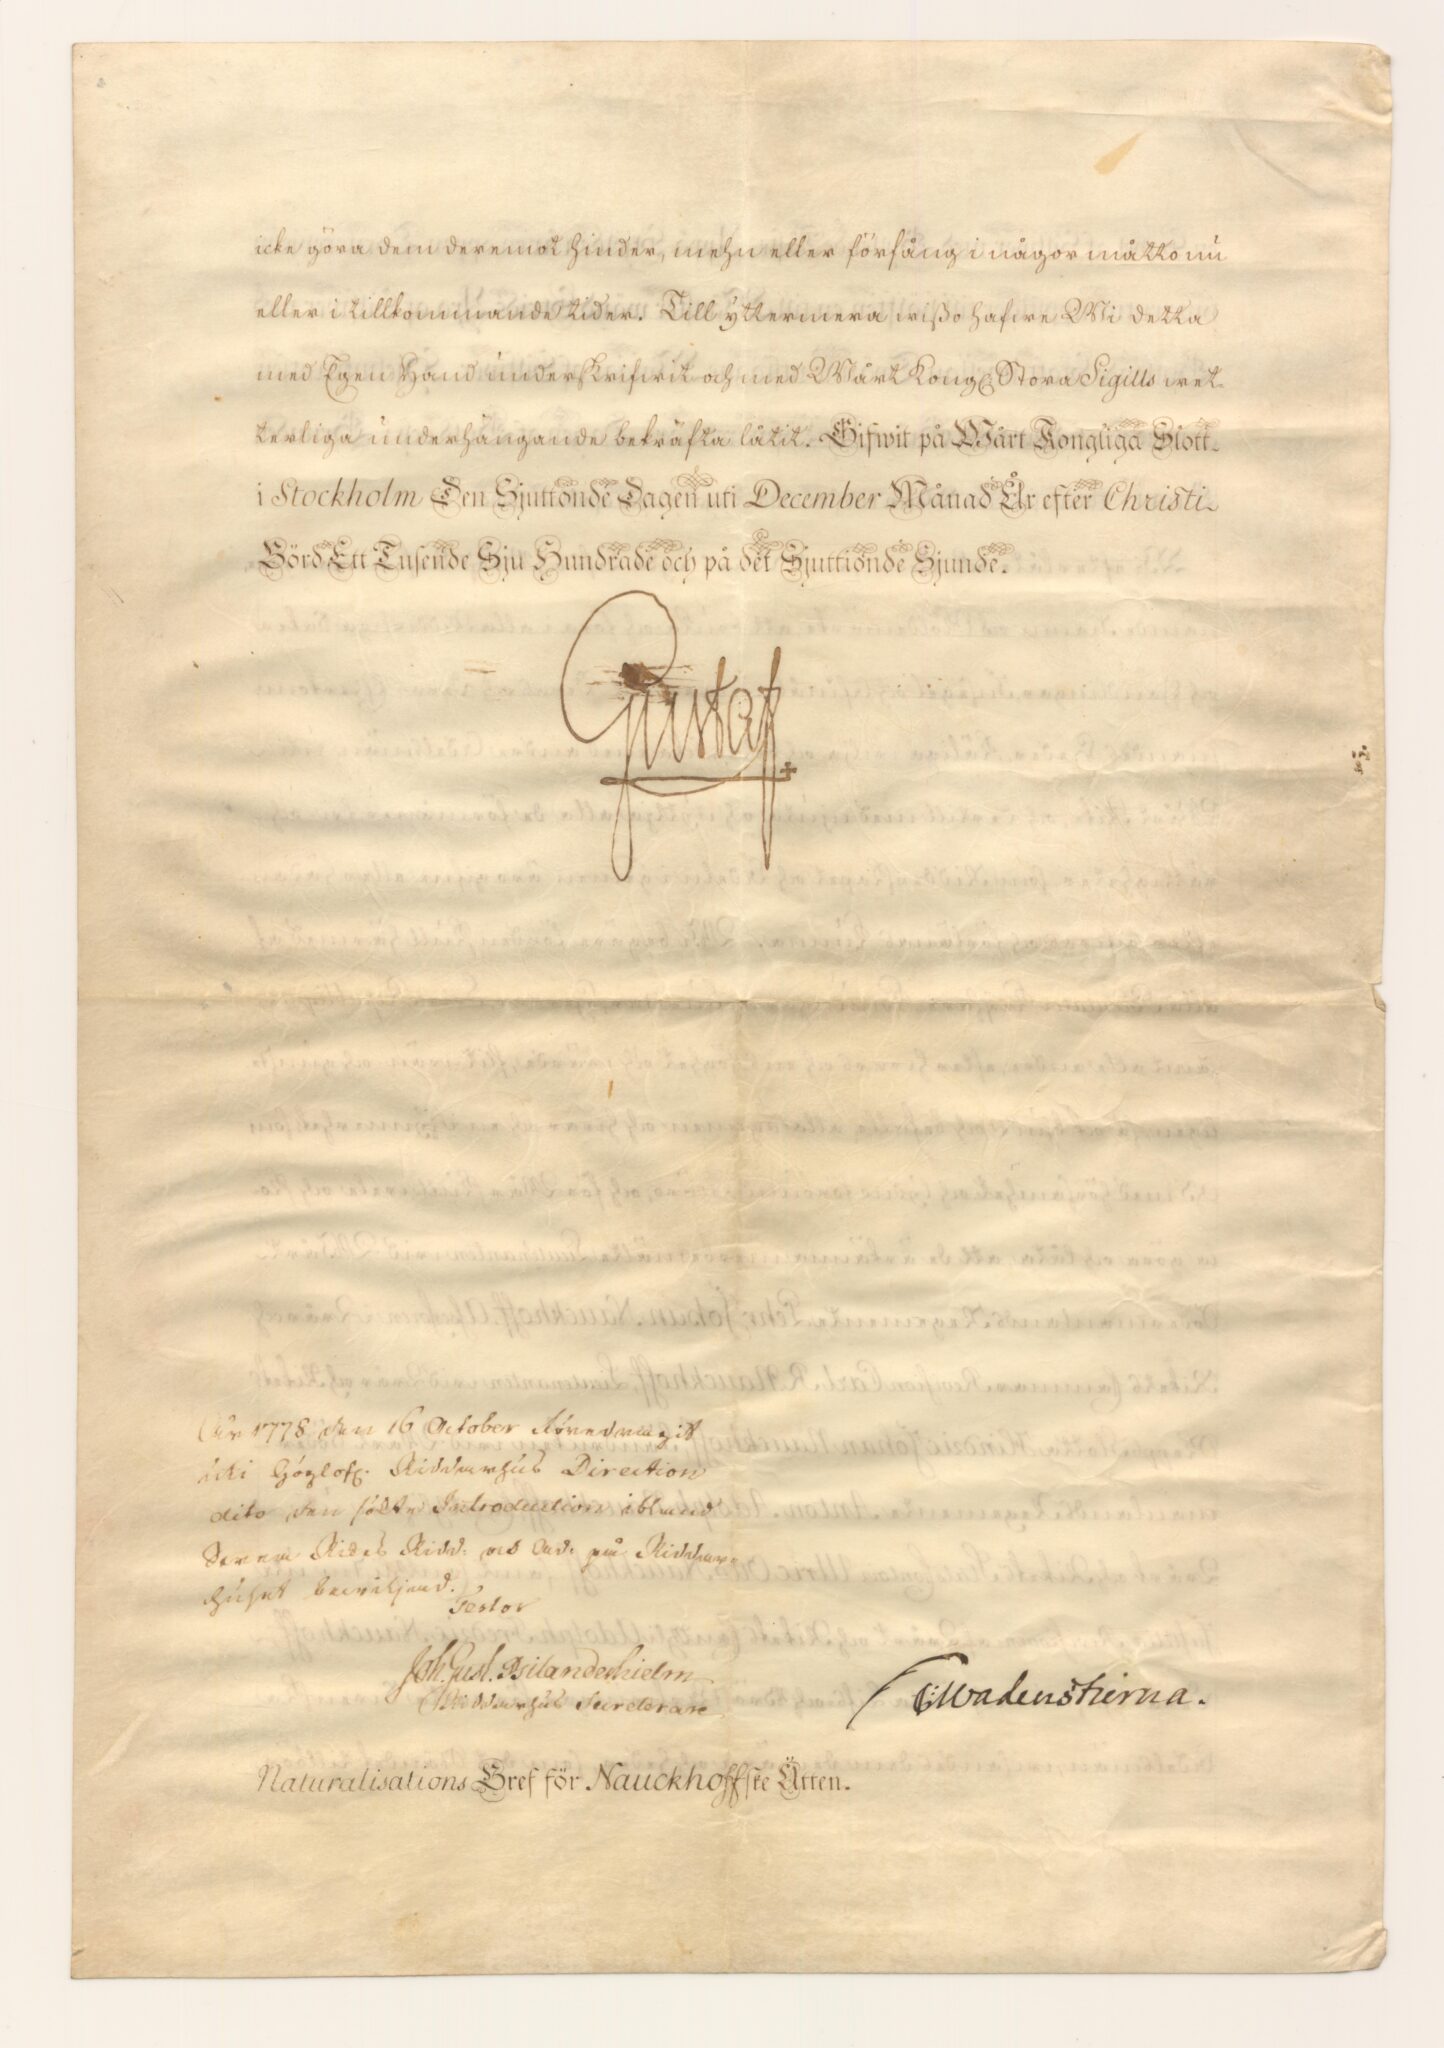 icke göra dem deremot hinder, mehn eller förfång i någor måtto nu
eller i tillkommande tider. Till yttermera wißo hafwe Wi detta
med Egen Hand underskrifwit och med Wårt Kongl. Stora Sigills wet-
terliga underhängande bekräfta låtit. Gifwit på Wårt Kongliga Slott
i Stockholm Den Sjuttonde Dagen uti December Månad År efter Christi
Börd Ett Tusende Sju Hundrade och på det Sjuttionde Sjunde.
Gustaf
År 1778 den 16 October föredragit
uti Höglofl. Riddarhus Direction
dito den sökte Introduction ibland
Swea Rikes Ridd. och Ad. på Riddar-
huset bewiljad.
Testor
Joh. Gust. Psilanderhielm
Riddarhus Secreterare
Wadenstierna.
Naturalisations Bref för Nauckhoffske Ätten.